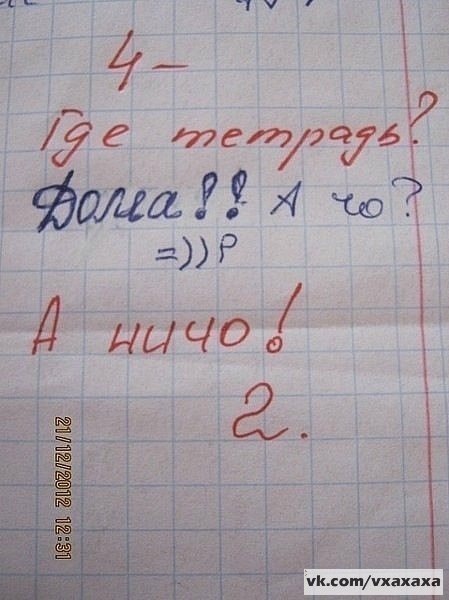 4-
Где тетрадь?
Дома!! А чо?
=))P
А ничо!
2.
21/12/2012 12:31
vk.com/vxaxaxa